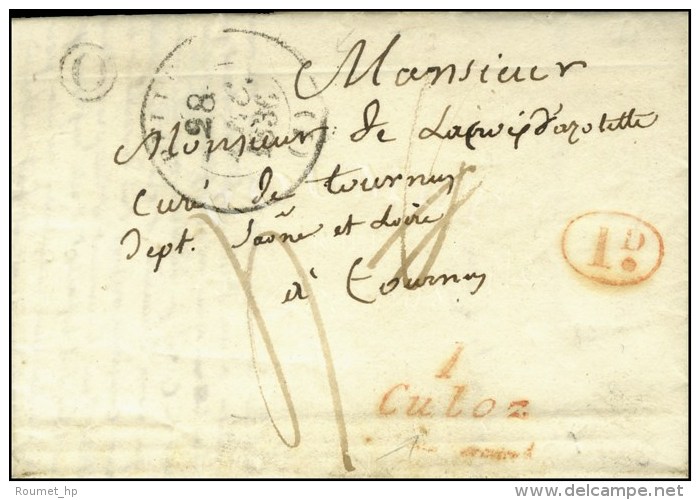 O
28
Monsieur
Monsieur de Lacroix d'azolette
Curé de tournus
Dept. Saône et Loire
à Tournus
1 D.
1
Culoz
Roumet_hp
delcampe.net